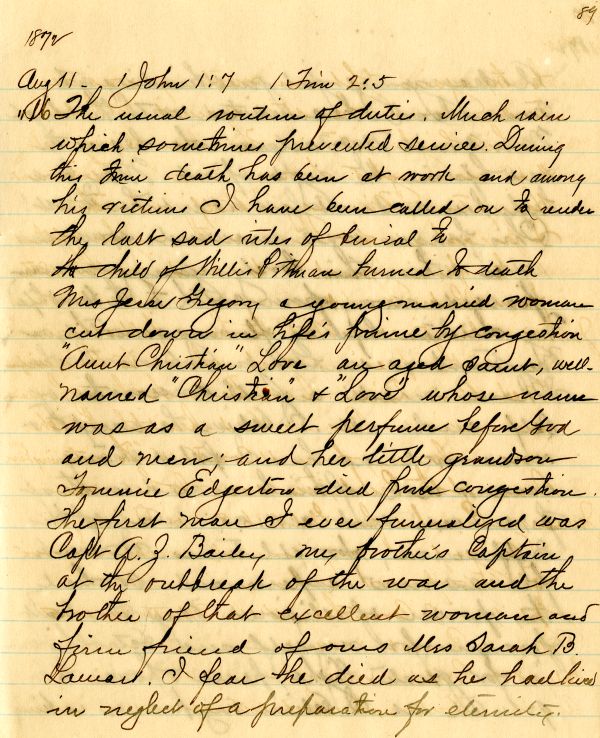 89
1872
Aug 11 - 1 John 1:7 1 Tim 2:5
" 16 The usual routine of duties. Much rain
which sometimes prevented service. During
this time death has been at work and among
his victims I have been called on to render
the last sad rites of burial to
the child of Willis Pitman burned to death
Mrs Jesse Gregory a young married woman
cut down in life's prime by congestion
"Aunt Christian" Love an aged saint, well-
named "Christian" & "Love" whose name
was as a sweet perfume before God
and men; and her little grandson
Tommie Edgerton died from congestion.
The first man I ever funeralized was
Capt A. Z. Bailey, my brother's Captain
at the outbreak of the war and the
brother of that excellent woman and
firm friend of ours Mrs Sarah B.
I fear he died as he had lived
in neglect of a preparation for eternity.